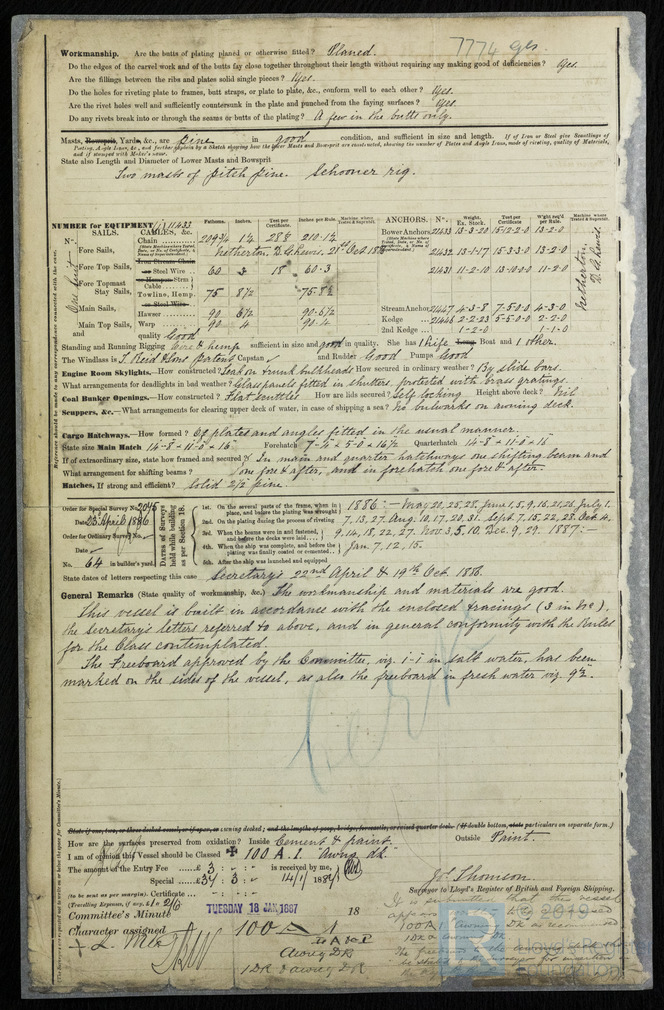 7774 Gls
Workmanship. Are the butts of plating planed or otherwise fitted? Planed.
Do the edges of the carvel work and of the butts fay close together throughout their length without requiring any making good of deficiencies? Yes.
Are the fillings between the ribs and plates solid single pieces? Yes.
Do the holes for riveting plate to frames, butt straps, or plate to plate, &c., conform well to each other? Yes.
Are the rivet holes well and sufficiently countersunk in the plate and punched from the faying surfaces? Yes.
Do any rivets break into or through the seams or butts of the plating? A few in the butts only.
Masts, Bowsprit, Yards, &c., are pine in good condition, and sufficient in size and length. If of Iron or Steel give Scantlings of
Plating, Angle Irons, &c., and further explain by a Sketch showing how the lower Masts and Bowsprit are constructed, showing the number of Plates and Angle Irons, mode of riveting, quality of Materials,
and if stamped with Maker's name.
State also Length and Diameter of Lower Masts and Bowsprit
Two masts of pitch pine. Schooner rig.
NUMBER for EQUIPMENT 11433
Nº. SAILS. CABLES, &c. Fathoms. Inches. Test per Certificate. Inches per Rule. Machine where Tested & Suprntdt. ANCHORS. Nº. Weight. Ex. Stock. Test per Certificate Wght req'd per Rule. Machine where Tested & Suprntdt.
Fore Sails, Chain 209¾ Bower Anchors 21433 13-3-20 13-2-0
Netherton. D. G. Lewis. 21st Oct. 21432 13-1-17 15-3-3-0 13-2-0
Fore Top Sails, or Steel Wire 60 3 18 60-3 21431 11-2-10 11-2-0
Fore Topmast Stay Sails, Towline, Hemp 75 8½ 75-8½
Main Sails, Hawser 90 6½ 90-6½ Stream Anchor 21447 4-3-8 7-5-0-0 4-3-0
Main Top Sails, Warp 90 4 90-4 Kedge 2-2-23 5-5-0-0 2-2-0
and quality Good 2nd Kedge 1-2-0 1-1-0
Netherton. D. G. Lewis.
Standing and Running Rigging Wire & hemp sufficient in size and good in quality. She has 1 life Long Boat and 1 other.
The Windlass is J. Reid & Sons patent Capstan and Rudder Good Pumps Good
Engine Room Skylights.—How constructed? Teak on trunk bulkheads How secured in ordinary weather? By slide bars.
What arrangements for deadlights in bad weather? Glass panels fitted in shutters, protected with brass gratings.
Coal Bunker Openings.—How constructed? Flat scuttles How are lids secured? Self locking Height above deck? Nil
Scuppers, &c.—What arrangements for clearing upper deck of water, in case of shipping a sea? No bulwarks on awning deck.
Cargo Hatchways.—How formed? Of plates and angles fitted in the usual manner.
State size Main Hatch 14-8 × 11-0 × 16 Forehatch 7-4 × 5-0 × 16½ Quarterhatch 14-8 × 11-0 × 15
If of extraordinary size, state how framed and secured? In main and quarter hatchways one shifting beam and
What arrangement for shifting beams? one fore & after, and in forehatch one fore & after.
Hatches, If strong and efficient? Solid 2½ pine.
Order for Special Survey No. 2045
Date 23 April 1886
Order for Ordinary Survey No.
Date
No. 64 in builder's yard.
DATES of Surveys held while building as per Section 18.
1st. On the several parts of the frame, when in place, and before the plating was wrought
2nd. On the plating during the process of riveting
3rd. When the beams were in and fastened, and before the decks were laid
4th. When the ship was complete, and before the plating was finally coated or cemented
5th. After the ship was launched and equipped
1886:- May 20, 25, 28, June 1, 5, 9, 16, 21, 26, July 1,
7, 13, 27, Aug. 10, 17, 20, 31. Sept. 7, 15, 22, 28. Oct. 4,
9, 14, 18, 22, 27. Nov. 3, 5, 10. Dec. 9, 29. 1887:-
Jan. 7, 12, 15.
State dates of letters respecting this case Secretary's 22nd April & 19th Oct. 1886.
General Remarks (State quality of workmanship, &c.) The workmanship and materials are good.
This vessel is built in accordance with the enclosed tracings (3 in No.),
the Secretary's letters referred to above, and in general conformity with the Rules
for the Class contemplated.
The Freeboard approved by the Committee, viz. 1-1 in salt water, has been
marked on the sides of the vessel, as also the freeboard in fresh water viz. 9½.
State if one, two, or three decked vessel, or if spar, or awning decked; and the lengths of poop, bridge, forecastle, or raised quarter deck. (If double bottom, state particulars on separate form.)
How are the surfaces preserved from oxidation? Inside Cement & paint. Outside Paint.
I am of opinion this Vessel should be Classed ✠ 100 A. 1. Awng dk.
The amount of the Entry Fee £ 3 : - : - is received by me,
Special £ 34 : 3 : - 14/1/1887
(to be sent as per margin). Certificate
(Travelling Expenses, if any, £)
Jos. Thomson
Surveyor to Lloyd's Register of British and Foreign Shipping.
Committee's Minute TUESDAY 18 JAN 1887 18
Character assigned 100 A 1
Awng Dk
1 Dk & awng Dk
It is submitted that this vessel